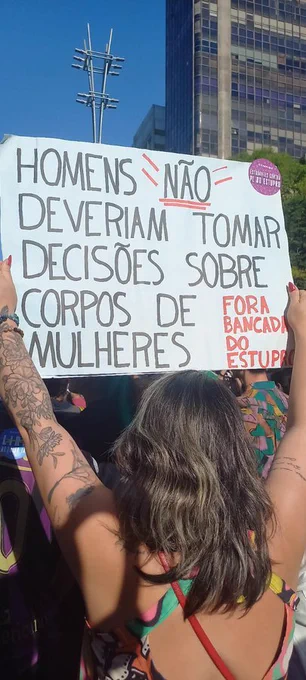 HOMENS NÃO
DEVERIAM TOMAR
DECISÕES SOBRE
CORPOS DE
MULHERES
FORA
BANCADA
DO
ESTUPRO